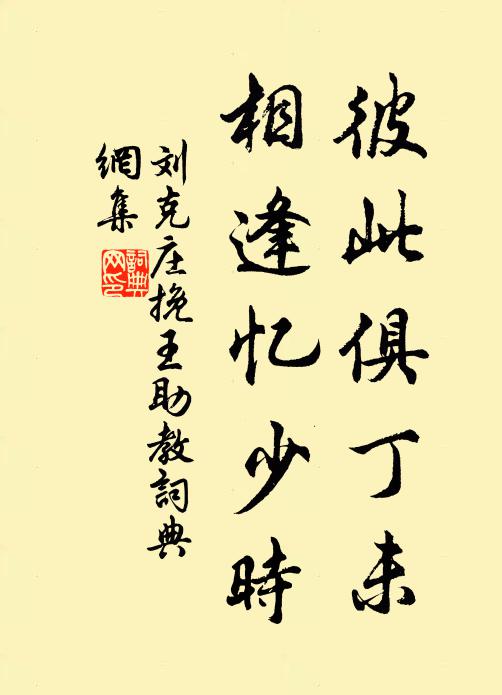 彼此俱丁未
相逢忆少時
刘克庄挽王助教詞典
網集
詞典
网印